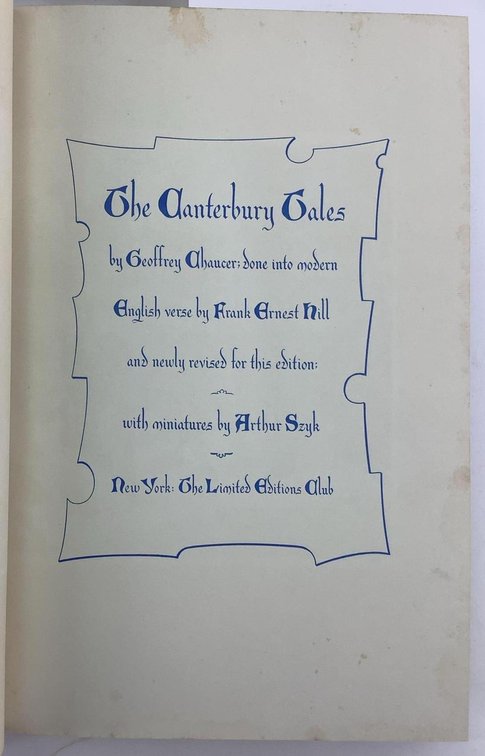 The Canterbury Tales
by Geoffrey Chaucer; done into modern
English verse by Frank Ernest Hill
and newly revised for this edition:
with miniatures by Arthur Szyk
New York: The Limited Editions Club